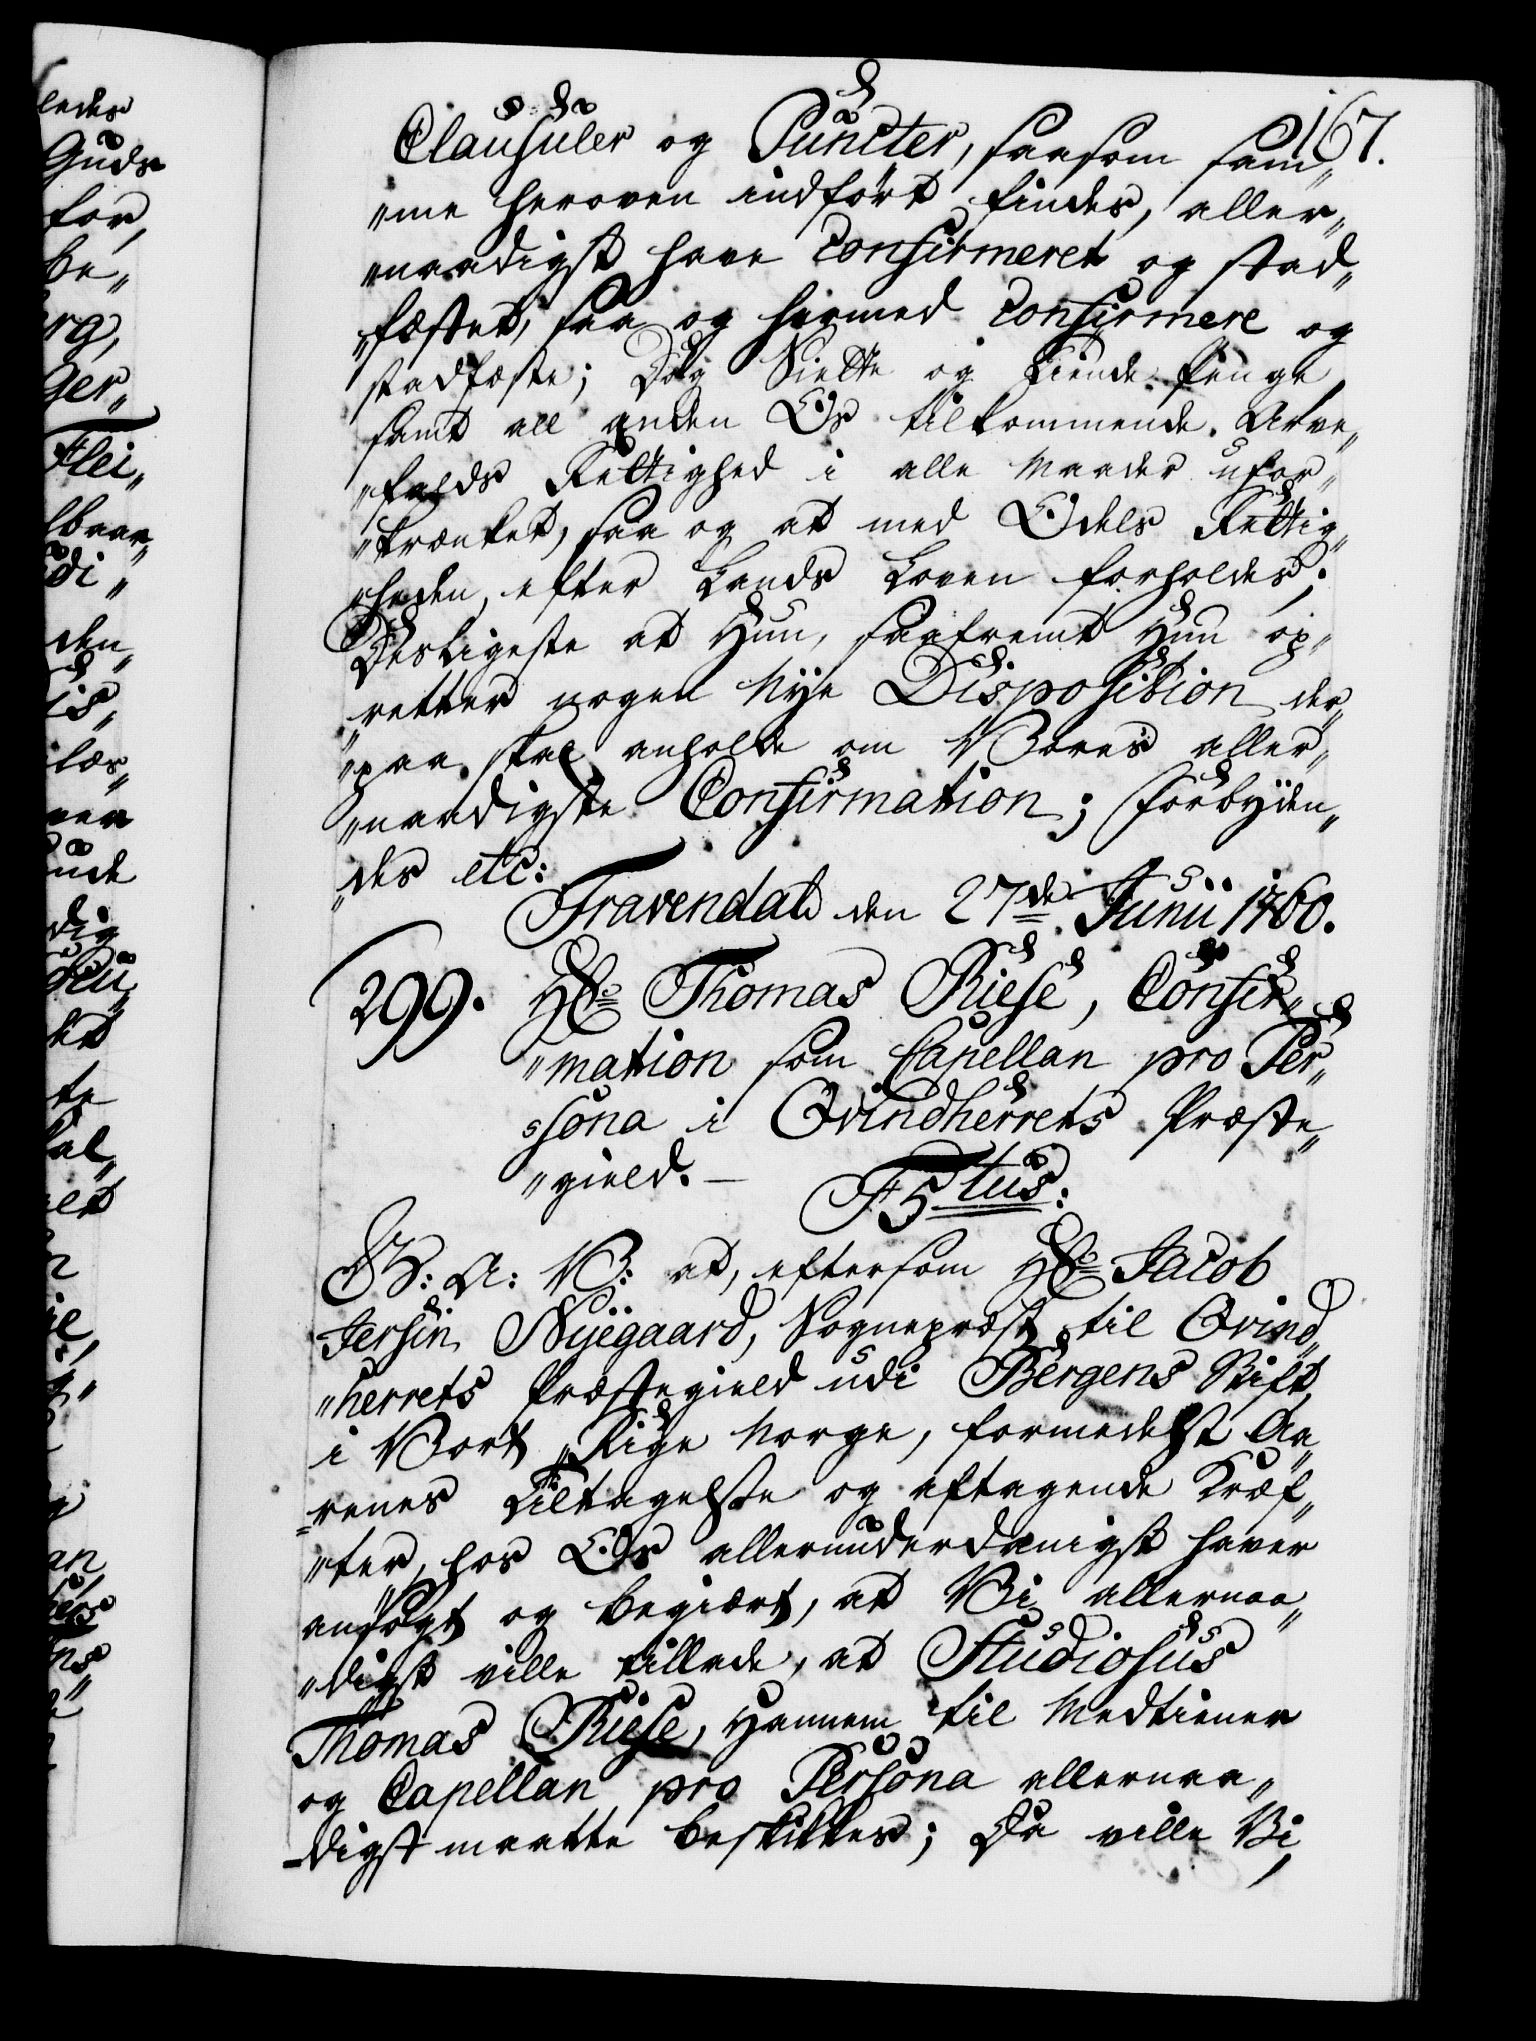 167.
Clausuler og Puncter, saasom sam„
„me heroven indført findes, aller„
„naadigst have Confirmeret og stad„
„fæstet, saa og hermed Confirmere og
stadfæste; Dog Siette og Tiende Penge
samt all anden Os tilkommende Arve„
„falds Rettighed i alle Maader ufor„
„krænket, saa og at med Odels Rettig„
„heden, efter Lands Loven forholdes;
Desligeste at Hun, saafremt Hun op„
„retter nogen Nye Disposition der„
„paa skal anholde om Vores aller„
„naadigste Confirmation; Forbyden„
„des etc:
Travendal den 27de Junii 1760.
299. Hr Thomas Riese, Confir„
„mation som Capellan pro Per„
sona i Qvindherrets Præste„
„gield. —
F5tus:
G: A: V: at, eftersom Hr Jacob
Jersin Nyegaard, Sognepræst til Qvind„
„herrets Præstegield udi Bergens Stift
i Vort Rige Norge, formedelst Aa„
„renes Tiltagelse og aftagende Kræf„
„ter, hos Os allerunderdanigst haver
ansøgt og begiert, at Vi allernaa„
„digst ville tillade, at Studiosus
Thomas Riese, Hannem til Medtiener
og Capellan pro Persona allernaa„
digst maatte beskikkes; Da ville Vi,
ledes
Guds
for,
be„
rg,
ger„
Flei„
lbaar„
di„
den„
is„
læs„
ude
dig
det
te
kal„
elt
an